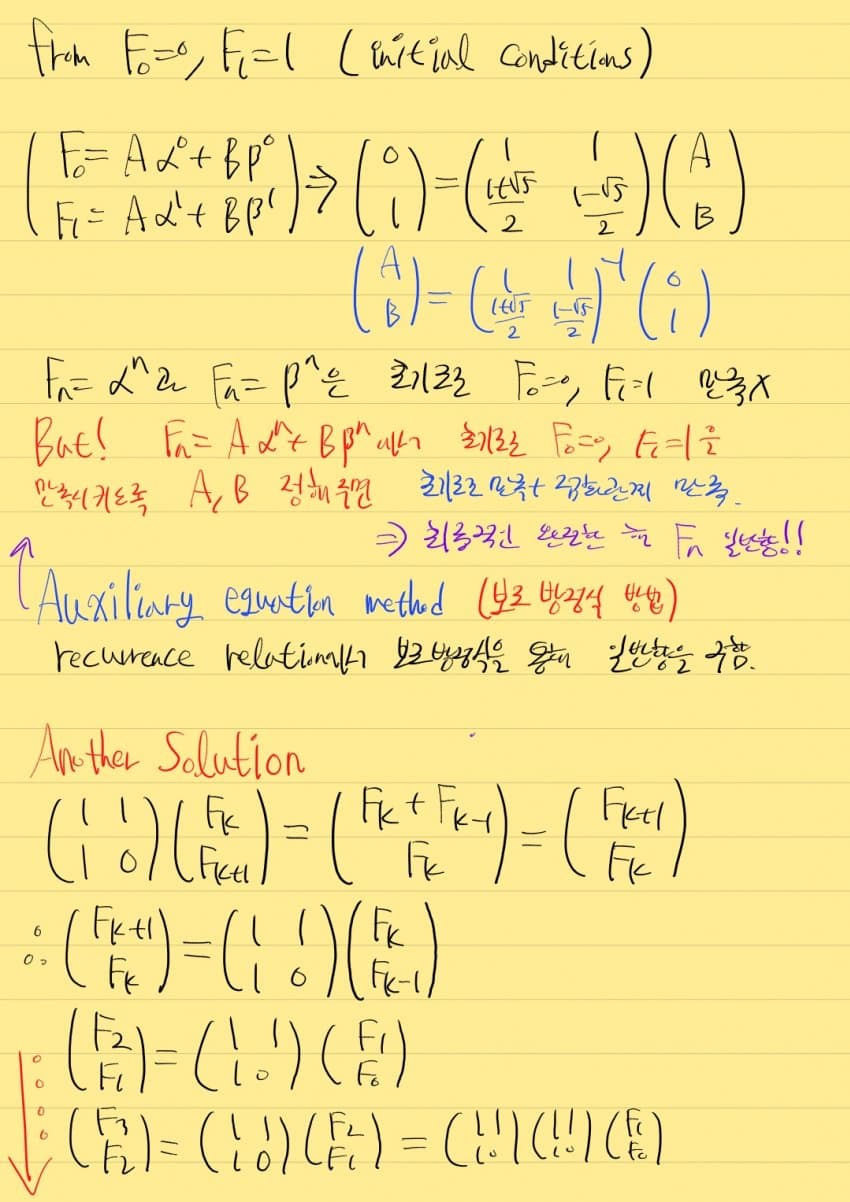 from F₀=0, F₁=1 (initial conditions)
(F₀= Aα⁰+Bβ⁰ / F₁= Aα¹+Bβ¹) ⇒ (0 / 1) = (1 1 / (1+√5)/2 (1-√5)/2) (A / B)
(A / B) = (1 1 / (1+√5)/2 (1-√5)/2)⁻¹ (0 / 1)
Fₙ= αⁿ과 Fₙ= βⁿ은 초기조건 F₀=0, F₁=1 만족X
But! Fₙ= Aαⁿ+Bβⁿ에서 초기조건 F₀=0, F₁=1을
만족시키도록 A, B 정해주면 초기조건 만족+점화관계 만족.
⇒ 최종적인 완전한 해 Fₙ 일반항!!
Auxiliary equation method (보조 방정식 방법)
recurrence relation에서 보조방정식을 통해 일반항을 구함.
Another Solution
(1 1 / 1 0) (Fₖ / Fₖ₊₁) = (Fₖ+Fₖ₋₁ / Fₖ) = (Fₖ₊₁ / Fₖ)
∴ (Fₖ₊₁ / Fₖ) = (1 1 / 1 0) (Fₖ / Fₖ₋₁)
(F₂ / F₁) = (1 1 / 1 0) (F₁ / F₀)
(F₃ / F₂) = (1 1 / 1 0) (F₂ / F₁) = (1 1 / 1 0) (1 1 / 1 0) (F₁ / F₀)